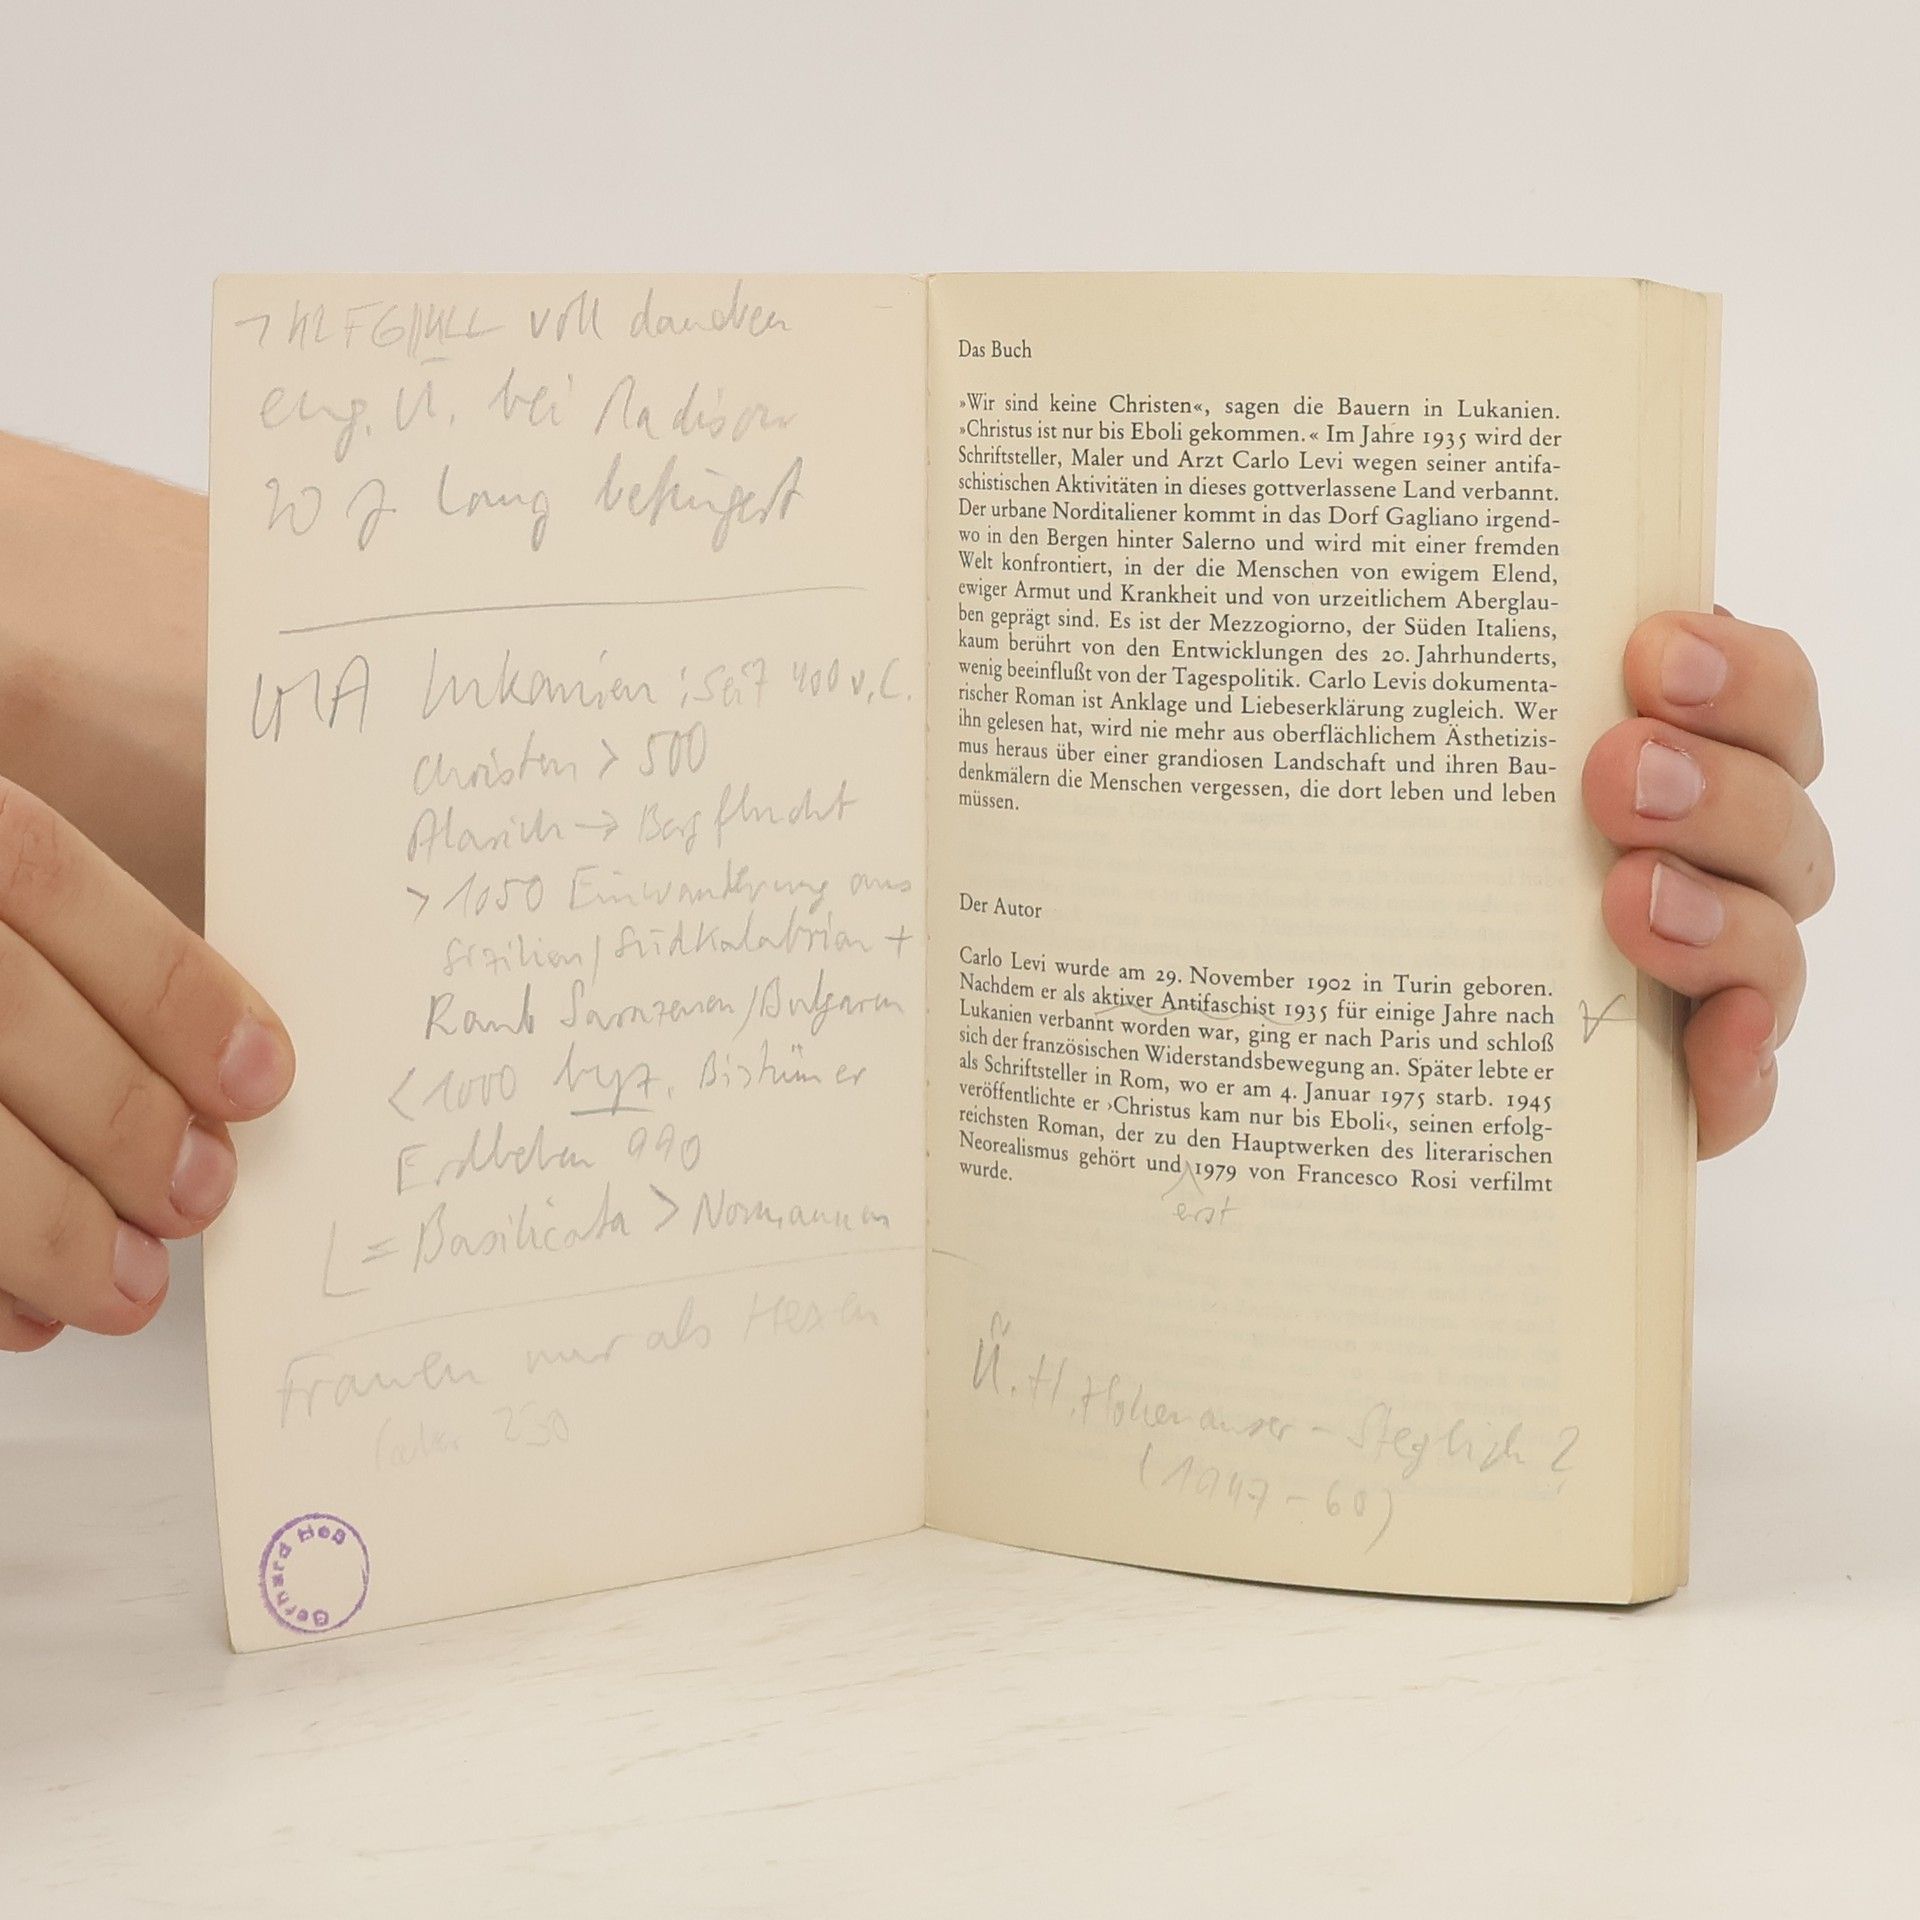 voll daneben
eng. Ü. bei Madison
20 J lang
UMA Lukanien : seit 400 v. C.
Christen > 500
Alarich → Bergflucht
> 1050 Einwanderung aus
Sizilien / Südkalabrien +
Raub Sarazenen / Bulgaren
< 1000 byz. Bistümer
Erdbeben 990
L = Basilicata > Normannen
Frauen nur als Hexen
250
Gerhard Heß
Das Buch
»Wir sind keine Christen«, sagen die Bauern in Lukanien.
»Christus ist nur bis Eboli gekommen.« Im Jahre 1935 wird der
Schriftsteller, Maler und Arzt Carlo Levi wegen seiner antifa-
schistischen Aktivitäten in dieses gottverlassene Land verbannt.
Der urbane Norditaliener kommt in das Dorf Gagliano irgend-
wo in den Bergen hinter Salerno und wird mit einer fremden
Welt konfrontiert, in der die Menschen von ewigem Elend,
ewiger Armut und Krankheit und von urzeitlichem Aberglau-
ben geprägt sind. Es ist der Mezzogiorno, der Süden Italiens,
kaum berührt von den Entwicklungen des 20. Jahrhunderts,
wenig beeinflußt von der Tagespolitik. Carlo Levis dokumenta-
rischer Roman ist Anklage und Liebeserklärung zugleich. Wer
ihn gelesen hat, wird nie mehr aus oberflächlichem Ästhetizis-
mus heraus über einer grandiosen Landschaft und ihren Bau-
denkmälern die Menschen vergessen, die dort leben und leben
müssen.
Der Autor
Carlo Levi wurde am 29. November 1902 in Turin geboren.
Nachdem er als aktiver Antifaschist 1935 für einige Jahre nach
Lukanien verbannt worden war, ging er nach Paris und schloß
sich der französischen Widerstandsbewegung an. Später lebte er
als Schriftsteller in Rom, wo er am 4. Januar 1975 starb. 1945
veröffentlichte er ›Christus kam nur bis Eboli‹, seinen erfolg-
reichsten Roman, der zu den Hauptwerken des literarischen
Neorealismus gehört und 1979 von Francesco Rosi verfilmt
wurde.
erst
Ü. H. Hohenemser-Steglich ?
(1947-60)